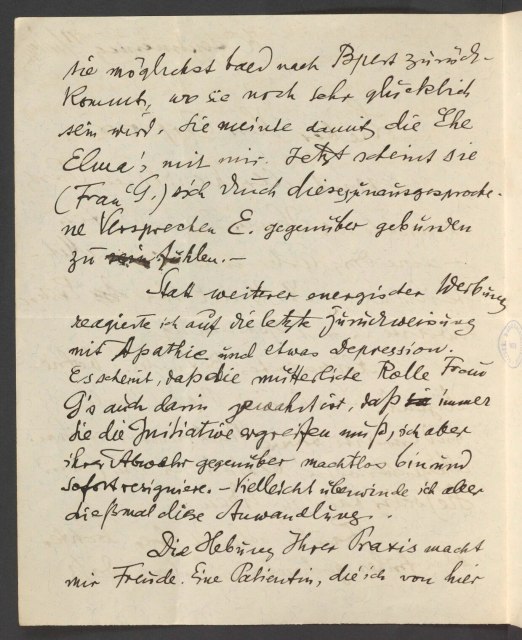 sie möglichst bald nach Bpest zurück-
kommt, wo sie noch sehr glücklich
sein wird. Sie meinte damit die Ehe
Elma's mit mir. Jetzt scheint sie
(Frau G.) sich durch dieses unausgesproche-
ne Versprechen E. gegenüber gebunden
zu sein fühlen. –
Statt weiterer energischer Werbung
reagierte ich auf die letzte Zurückweisung
mit Apathie und etwas Depression.
Es scheint, daß die mütterliche Rolle Frau
G's auch darin gewahrt ist, daß sie immer
Sie die Initiative ergreifen muß, ich aber
ihrer Abwehr gegenüber machtlos bin und
sofort resigniere. – Vielleicht überwinde ich aber
dießmal diese Anwandlung.
Die Hebung Ihrer Praxis macht
mir Freude. Eine Patientin, die ich von hier